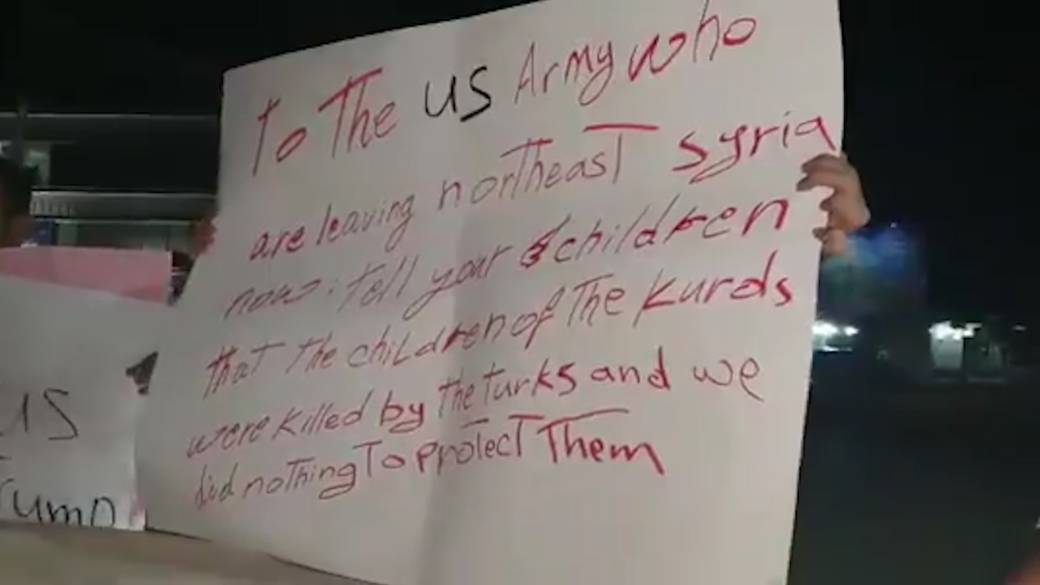 To The US Army who
are leaving northeast syria
now: tell your children
that the children of The Kurds
were killed by the Turks and we
did nothing To protect Them
US